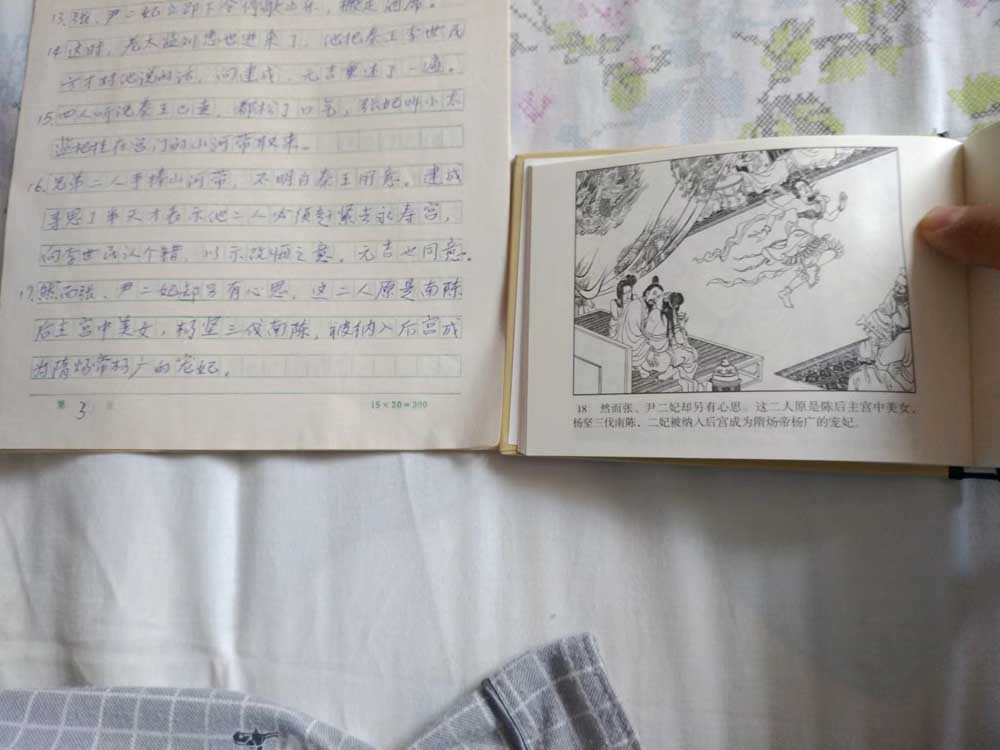 13.张、尹二妃立即下令停歌止乐，撤走酒席。
14.这时，老太监刘忠也进来了，他把秦王李世民
方才对他说的话，向建成、元吉重述了一遍。
15.四人听说秦王已走，都松了口气，张妃叫小太
监把挂在宫门的山河带取来。
16.兄弟二人手捧山河带，不明白秦王用意。建成
寻思了半天才表示他二人必须赶紧去长寿宫，
向李世民认个错，以示改悔之意。元吉也同意。
17.然而张、尹二妃却另有心思，这二人原是南陈
后主宫中美女，杨坚三伐南陈，被纳入后宫成
为隋炀帝杨广的宠妃。
第 3 页
15×20=300
18 然而张、尹二妃却另有心思。这二人原是陈后主宫中美女，
杨坚三伐南陈，二妃被纳入后宫成为隋炀帝杨广的宠妃。